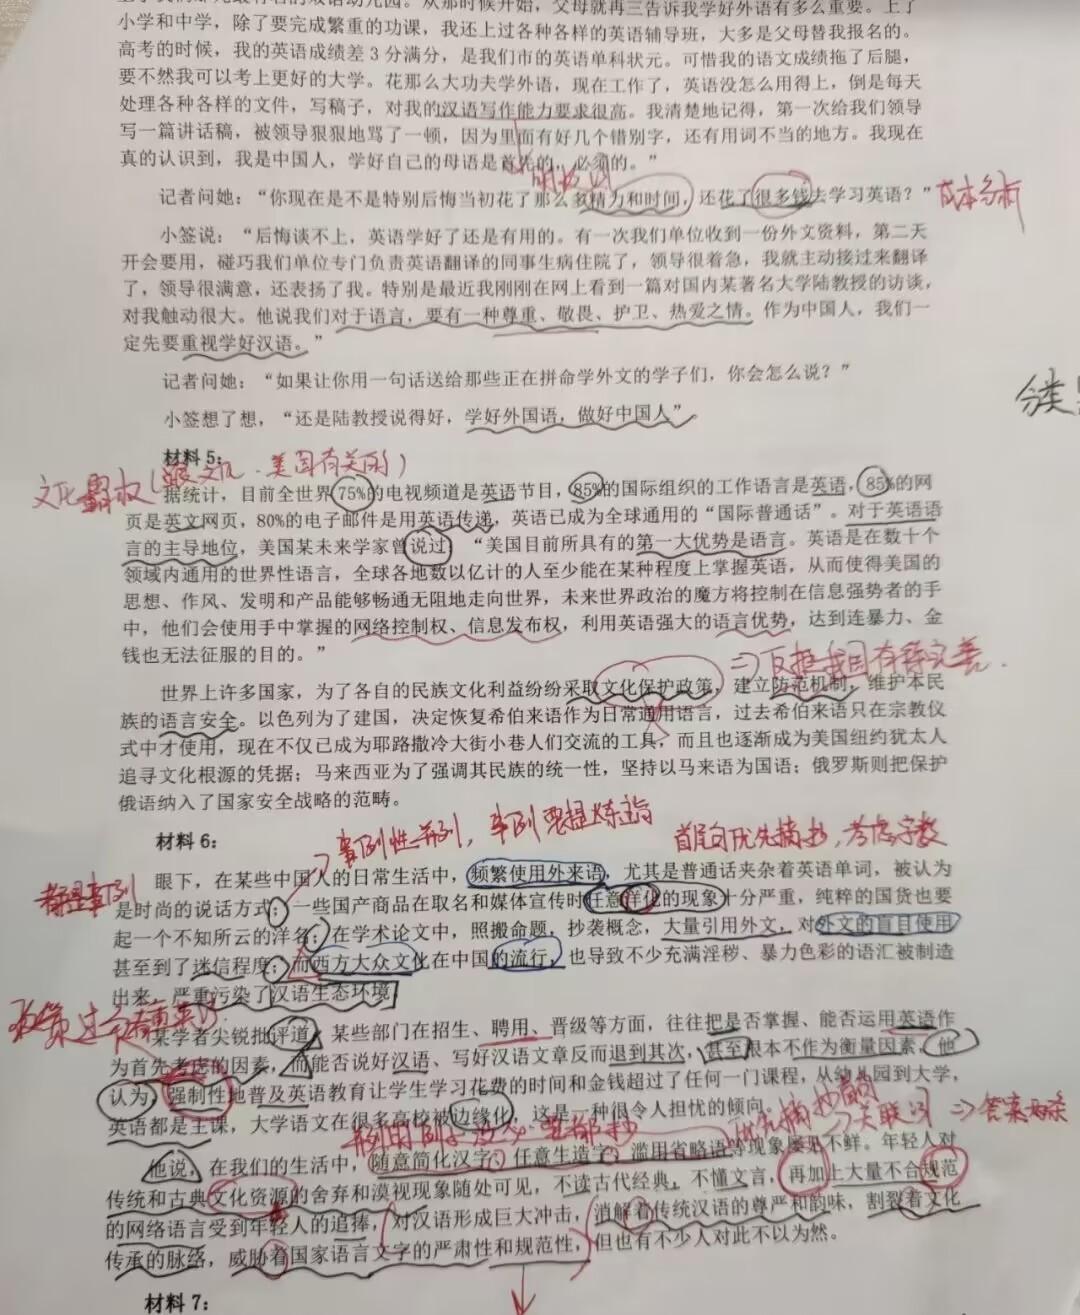 小学和中学，除了要完成繁重的功课，我还上过各种各样的英语辅导班，大多是父母替我报名的。
高考的时候，我的英语成绩差3分满分，是我们市的英语单科状元。可惜我的语文成绩拖了后腿，
要不然我可以考上更好的大学。花那么大功夫学外语，现在工作了，英语没怎么用得上，倒是每天
处理各种各样的文件，写稿子，对我的汉语写作能力要求很高。我清楚地记得，第一次给我们领导
写一篇讲话稿，被领导狠狠地骂了一顿，因为里面有好几个错别字，还有用词不当的地方。我现在
真的认识到，我是中国人，学好自己的母语是首先的，必须的。”
记者问她：“你现在是不是特别后悔当初花了那么多精力和时间，还花了很多钱去学习英语？”
成本分析
小签说：“后悔谈不上，英语学好了还是有用的。有一次我们单位收到一份外文资料，第二天
开会要用，碰巧我们单位专门负责英语翻译的同事生病住院了，领导很着急，我就主动接过来翻译
了，领导很满意，还表扬了我。特别是最近我刚刚在网上看到一篇对国内某著名大学陆教授的访谈，
对我触动很大。他说我们对于语言，要有一种尊重、敬畏、护卫、热爱之情。作为中国人，我们一
定先要重视学好汉语。”
记者问她：“如果让你用一句话送给那些正在拼命学外文的学子们，你会怎么说？”
分类
小签想了想，“还是陆教授说得好，学好外国语，做好中国人”
材料5：
文化霸权（ 美国有关的）
据统计，目前全世界75%的电视频道是英语节目，85%的国际组织的工作语言是英语，85%的网
页是英文网页，80%的电子邮件是用英语传递，英语已成为全球通用的“国际普通话”。对于英语语
言的主导地位，美国某未来学家曾说过“美国目前所具有的第一大优势是语言。英语是在数十个
领域内通用的世界性语言，全球各地数以亿计的人至少能在某种程度上掌握英语，从而使得美国的
思想、作风、发明和产品能够畅通无阻地走向世界，未来世界政治的魔方将控制在信息强势者的手
中，他们会使用手中掌握的网络控制权、信息发布权，利用英语强大的语言优势，达到连暴力、金
钱也无法征服的目的。”
=> 反推我国有待完善.
世界上许多国家，为了各自的民族文化利益纷纷采取文化保护政策，建立防范机制，维护本民
族的语言安全。以色列为了建国，决定恢复希伯来语作为日常通用语言，过去希伯来语只在宗教仪
式中才使用，现在不仅已成为耶路撒冷大街小巷人们交流的工具，而且也逐渐成为美国纽约犹太人
追寻文化根源的凭据；马来西亚为了强调其民族的统一性，坚持以马来语为国语；俄罗斯则把保护
俄语纳入了国家安全战略的范畴。
案例性并列，案例要提炼主旨
首尾句优先摘抄，考虑字数
材料6：
都是案例
眼下，在某些中国人的日常生活中，频繁使用外来语，尤其是普通话夹杂着英语单词，被认为
是时尚的说话方式；一些国产商品在取名和媒体宣传时任意洋化的现象十分严重，纯粹的国货也要
起一个不知所云的洋名；在学术论文中，照搬命题，抄袭概念，大量引用外文，对外文的盲目使用
甚至到了迷信程度；而西方大众文化在中国的流行，也导致不少充满淫秽、暴力色彩的语汇被制造
出来，严重污染了汉语生态环境
政策过于
某学者尖锐批评道，某些部门在招生、聘用、晋级等方面，往往把是否掌握、能否运用英语作
为首先考虑的因素，而能否说好汉语、写好汉语文章反而退到其次，甚至根本不作为衡量因素，他
认为，强制性地普及英语教育让学生学习花费的时间和金钱超过了任何一门课程，从幼儿园到大学，
英语都是主课，大学语文在很多高校被边缘化，这是一种很令人担忧的倾向。
优先摘抄前 关联词 => 答案
他说，在我们的生活中，随意简化汉字，任意生造字，滥用省略语等现象屡见不鲜。年轻人对
传统和古典文化资源的舍弃和漠视现象随处可见，不读古代经典，不懂文言，再加上大量不合规范
的网络语言受到年轻人的追捧，对汉语形成巨大冲击，消解着传统汉语的尊严和韵味，割裂着文化
传承的脉络，威胁着国家语言文字的严肃性和规范性，但也有不少人对此不以为然。
材料7：